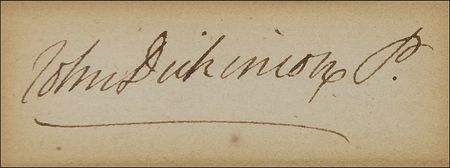 John Dickinson, P.